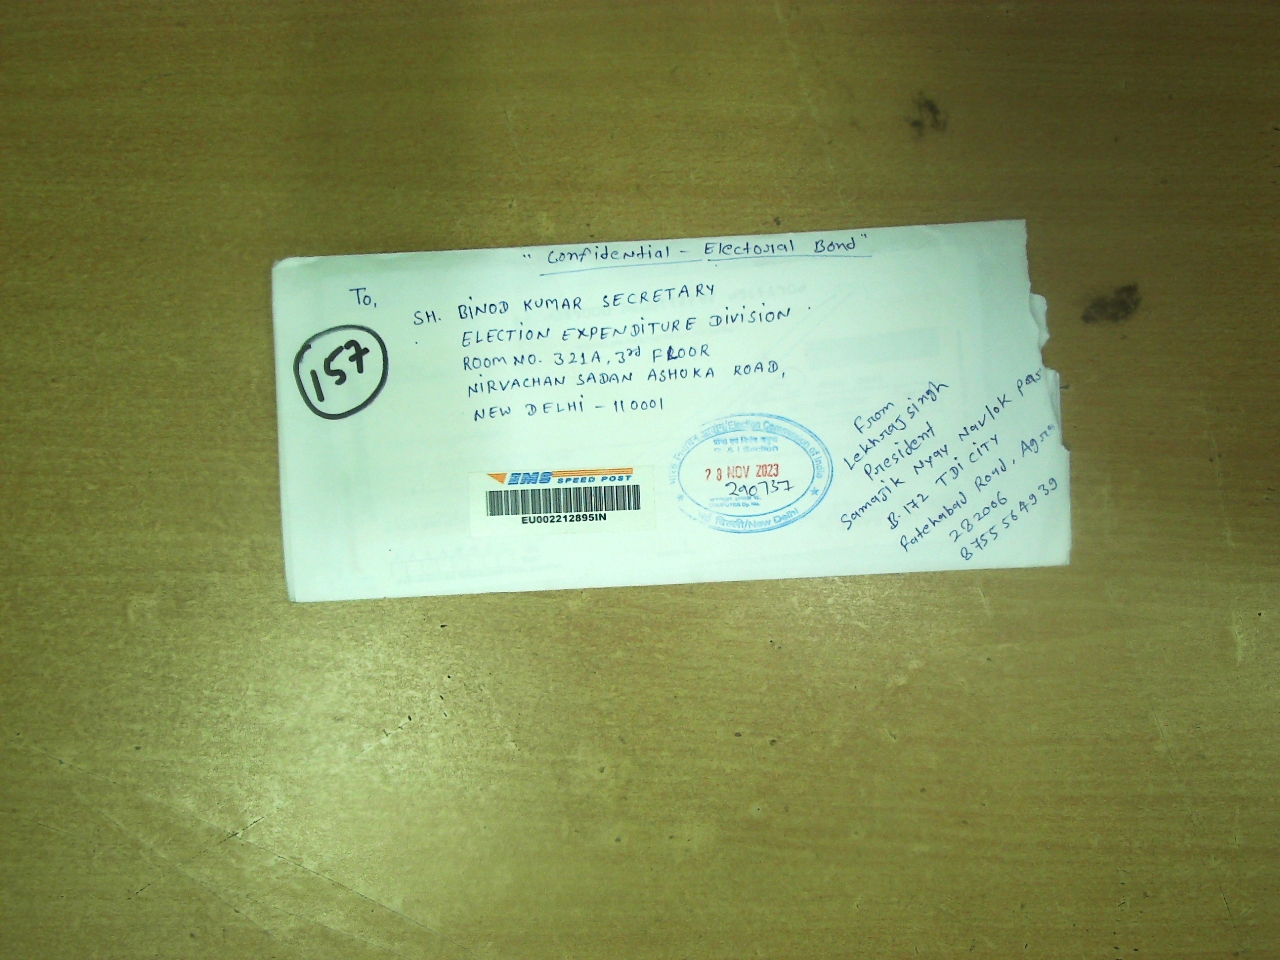 " Confidential - Electorial Bond "
To,
SH. BINOD KUMAR SECRETARY
ELECTION EXPENDITURE DIVISION
ROOM NO. 321A, 3rd FLOOR
NIRVACHAN SADAN ASHOKA ROAD,
NEW DELHI - 110001
157
EMS SPEED POST
EU002212895IN
Election Commission of India
28 NOV 2023
290737
New Delhi
From
Lekhrajsingh
President
Samajik Nyay Navlok
B-172 TDI CITY
Fatehabad Road, Agra
282006
8755564939